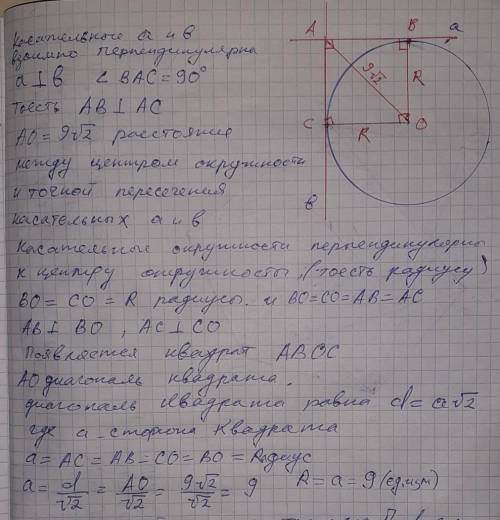 касательные a и в
взаимно перпендикулярна
a ⊥ в ∠ BAC = 90°
тоесть AB ⊥ AC
AO = 9√2 расстояние
между центром окружности
и точкой пересечения
касательных a и в
A B a
9√2 R
C R O
в
касательные окружности перпендикулярны
к центру окружности, (тоесть радиусу)
BO = CO = R радиусы. и BO=CO=AB=AC
AB ⊥ BO , AC ⊥ CO
Появляется квадрат ABOC
AO диагональ квадрата.
диагональ квадрата равна d = a√2
где a - сторона квадрата
a = AC = AB = CO = BO = Радиус
a = d/√2 = AO/√2 = 9√2/√2 = 9 R = a = 9 (ед.изм)